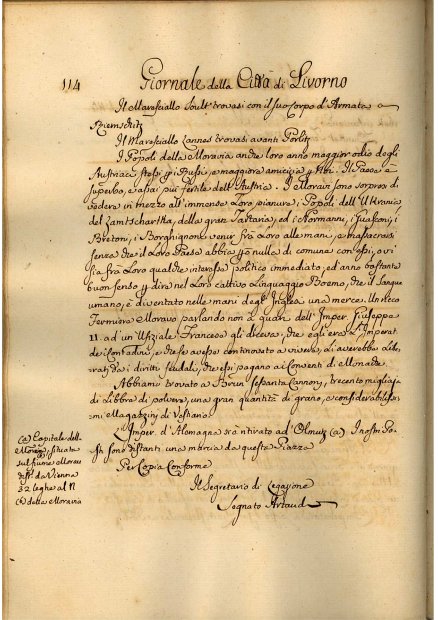 114
Giornale della Città di Livorno
Il Maresciallo Soult trovasi con il suo Corpo d'Armata a
Il Maresciallo Lannes trovasi avanti Porlitz
I Popoli della Moravia anno loro anno maggior odio degli
Austriaci stessi pi Russi, e maggiore amicizia p Noi. Il Paese è
superbo, e assai più fertile dell'Austria. I Moravi sono sorpresi di
vedere in mezzo all'immense Loro pianure; i Popoli dell'Ukrania
del Kamtschartka, della gran Tartaria, ed i Normanni, i Guasconi, i
Bretoni, i Borghignone venir frà Loro alle mani, e massacrarsi
senza che il Loro Paese abbia p nulla di comune con essi, o vi
sia frà Loro qualche interesse politico immediato, ed anno bastante
buon senso p dire nel Loro cattivo Linguaggio Boemo, che il sangue
umano, è diventato nelle mani degl'Inglesi una merce. Un ricco
Fermiere Moravo parlando non à guari dell'Imper. Giuseppe
II. ad un Ufiziale Francese gli diceva, che egli era L'Imperat.
de' Contadini, e che se avesse continovato a vivere, li averebbe libe
rati da i diritti feudali, che essi pagano ai Conventi di Monache.
Abbiamo trovato a Brun sessanta Cannoni, trecento migliaja
di Libbre di polvere, una gran quantità di grano, e considerabilissi
mi Magazzini di Vestiario.
Il Imper. d'Alemagna s'è ritirato ad Olmutz (a). I nostri Po-
sti sono distanti una marcia da questa Piazza
Per Copia Conforme
Il Segretario di Legazione
Segnato Artaud
(a) Capitale della
Moravia, situata
sul fiume Morau
dist. da Vienna
32 leghe al N
della Moravia